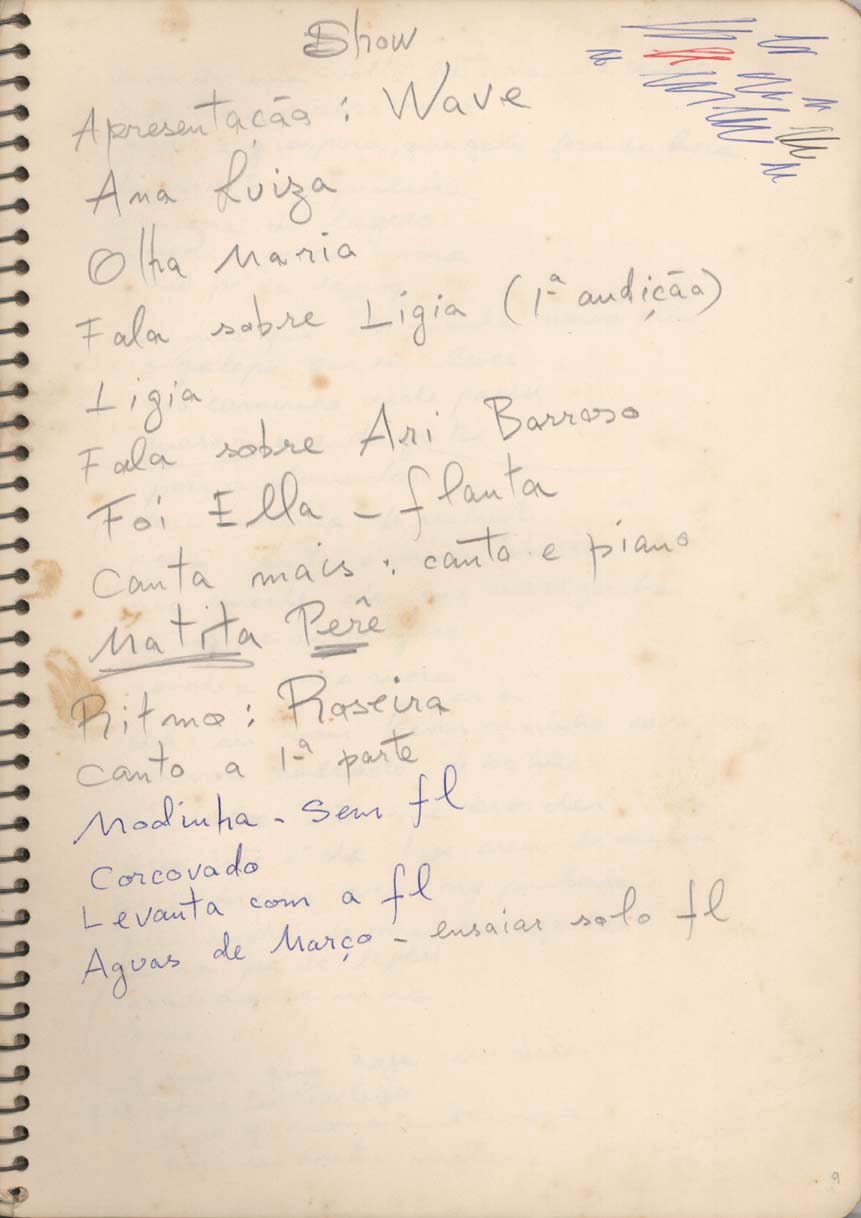 Show
Apresentação : Wave
Ana Luiza
Olha Maria
Fala sobre Ligia (1ª audição)
Ligia
Fala sobre Ari Barroso
Foi Ella - flauta
Canta mais : canto e piano
Matita Perê
Ritmo : Roseira
canto a 1ª parte
Modinha - sem fl
Corcovado
Levanta com a fl
Aguas de Março - ensaiar solo fl
9